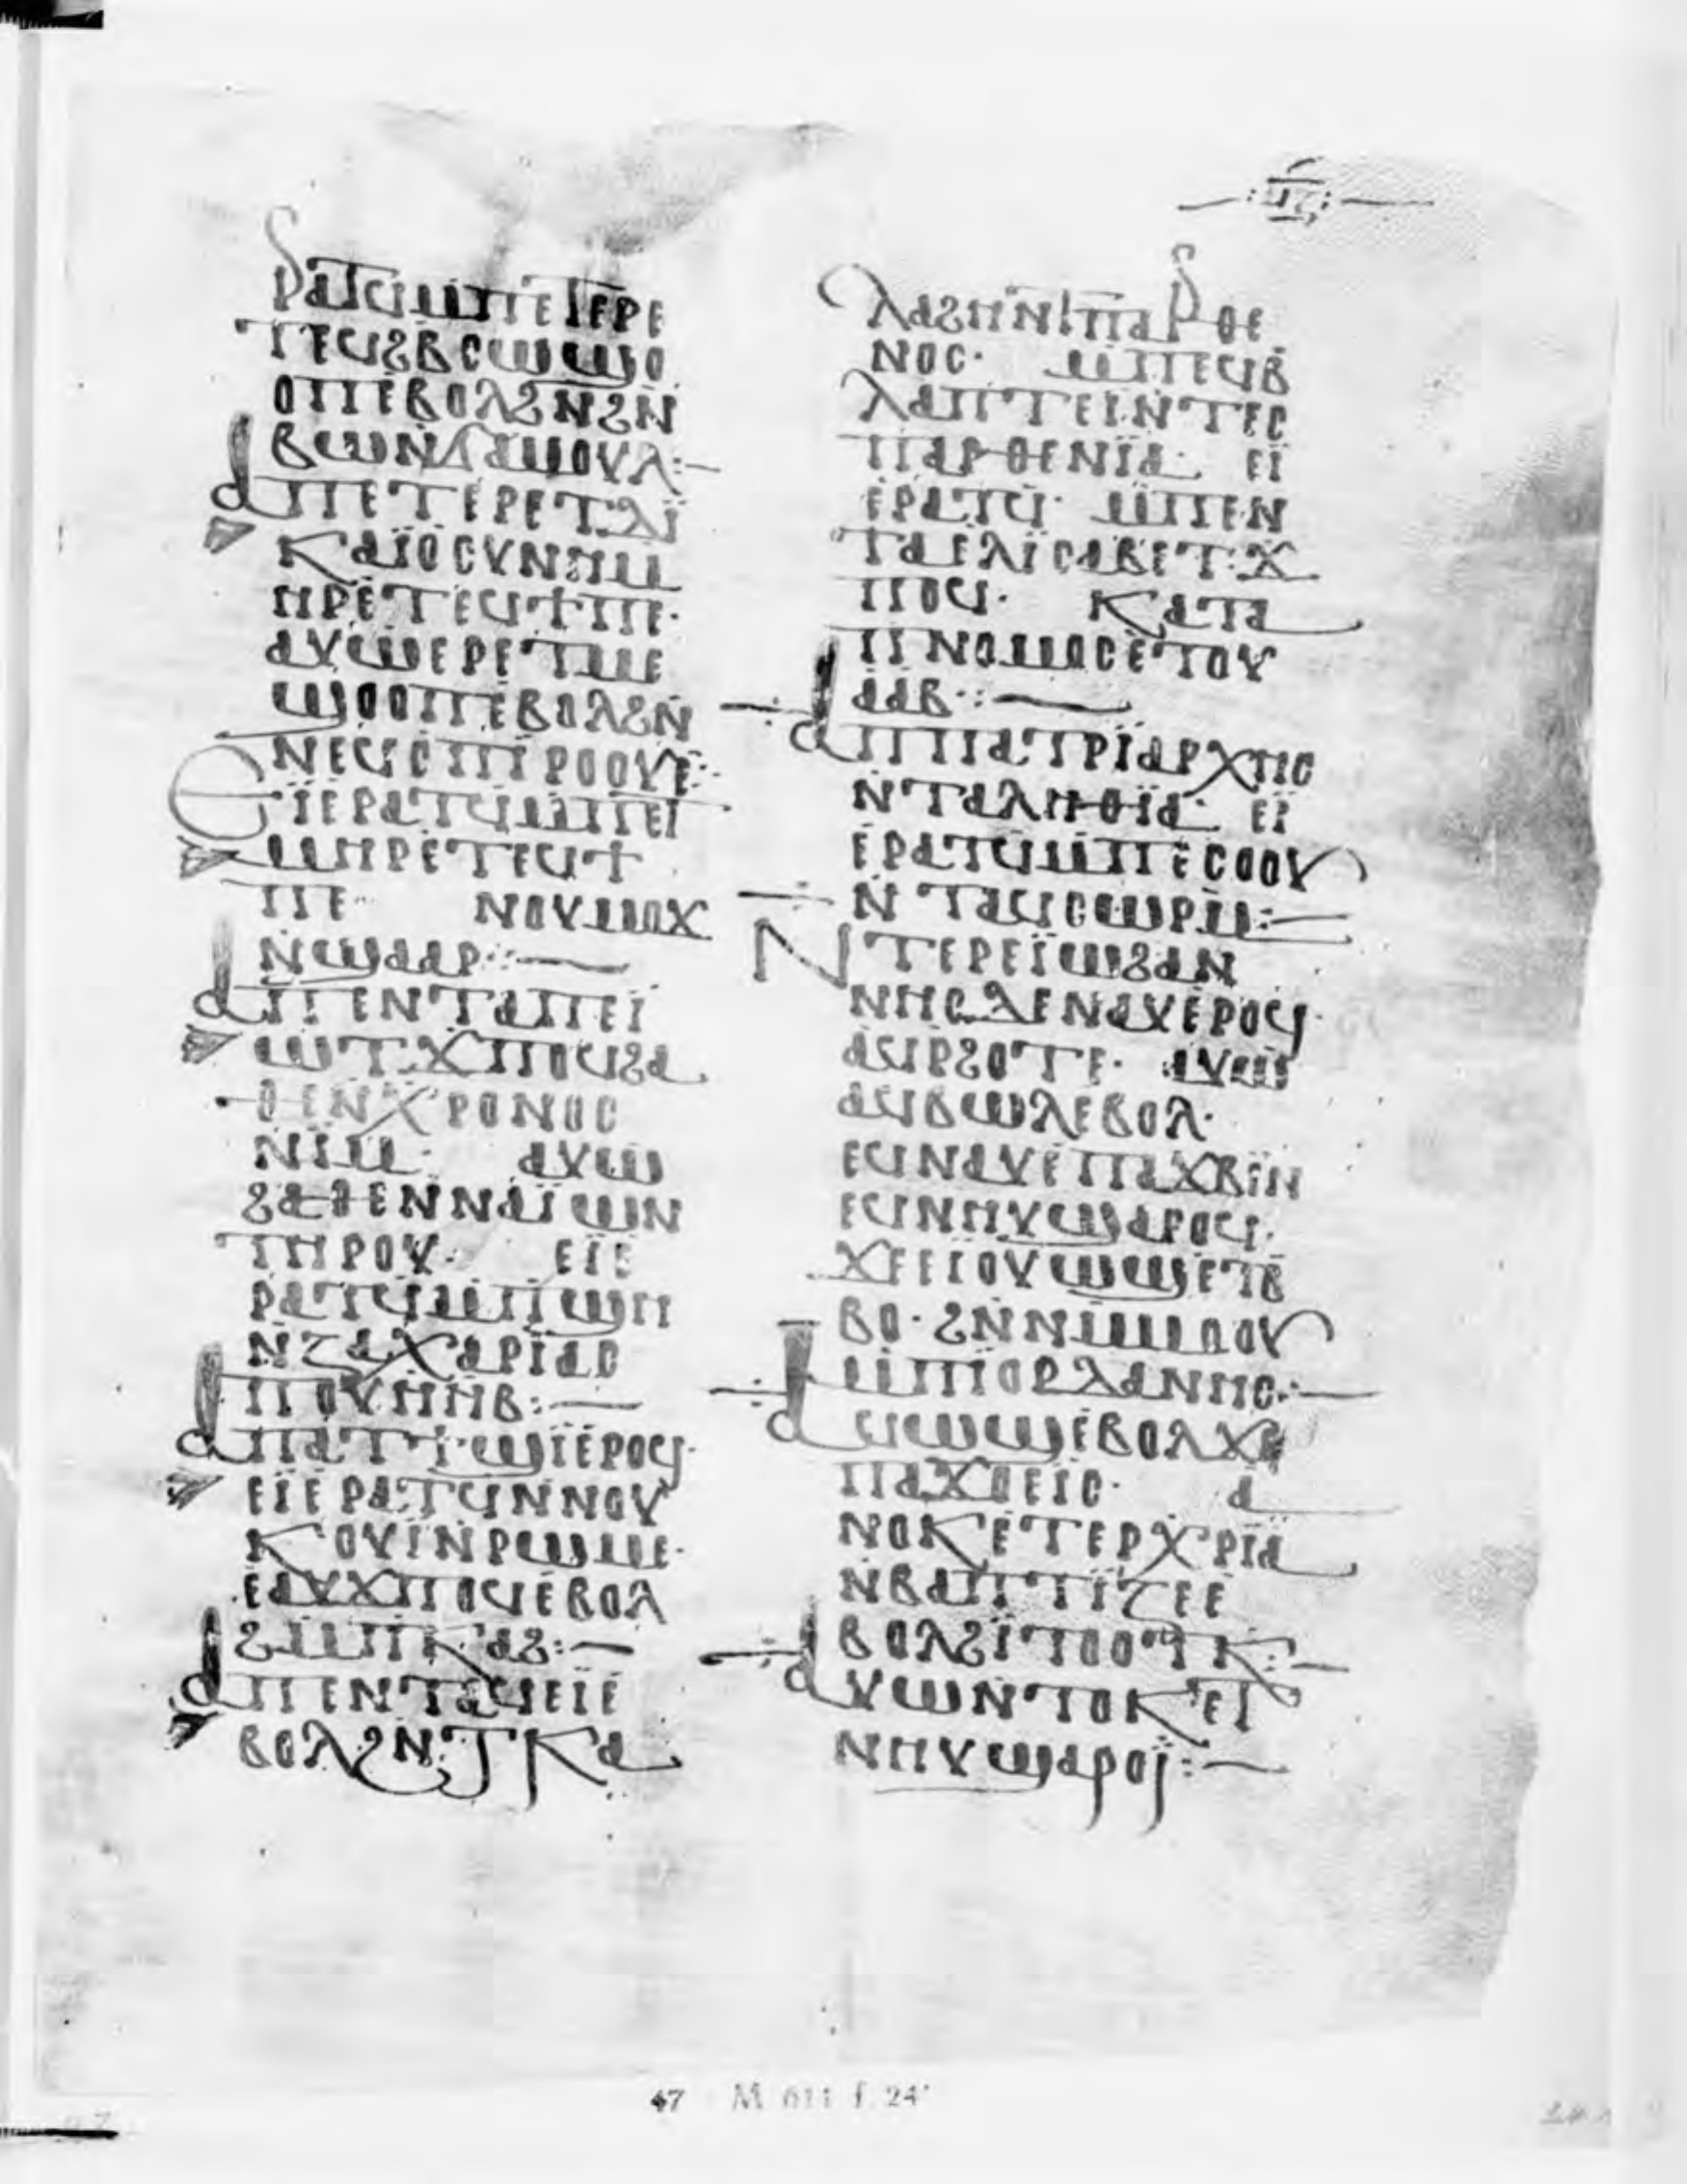 ⲙⲍ
ⲣⲁⲧϥⲙⲡⲉⲧⲉⲣⲉ
ⲧⲉϥϩⲃⲥⲱϣⲟ
ⲟⲡⲉⲃⲟⲗϩⲛϩⲛ
ⲃⲱⲛϭⲁⲙⲟⲩⲗ:—
ⲁⲡⲉⲧⲉⲣⲉⲧⲇⲓ̈
ⲕⲁⲓ̈ⲟⲥⲩⲛⲏⲙ
ⲏⲣⲉⲧⲉϥϯⲡⲉ·
ⲁⲩⲱⲉⲣⲉⲧⲙⲉ
ϣⲟⲟⲡⲉⲃⲟⲗϩⲛ
ⲛⲉϥⲥⲡⲓⲣⲟⲟⲩⲉ:
ⲉⲓ̈ⲉⲣⲁⲧϥⲙⲡⲉⲓ
ⲙⲏⲣⲉⲧⲉϥϯ
ⲡⲉ· ⲛⲟⲩⲙⲟϫ
ⲛϣⲁⲁⲣ:—
ⲁⲡⲉⲛⲧⲁⲡⲉⲓ̈
ⲱⲧϫⲡⲟϥϩⲁ
ⲑⲉⲛⲭⲣⲟⲛⲟⲥ
ⲛⲓ̈ⲙ· ⲁⲩⲱ
ϩⲁⲑⲉⲛⲛⲁⲓ̈ⲱⲛ
ⲧⲏⲣⲟⲩ· ⲉⲓ̈ⲉ
ⲣⲁⲧϥⲙⲡϣⲏ
ⲛⲍⲁⲭⲁⲣⲓ̈ⲁⲥ
ⲡⲟⲩⲏⲏⲃ:—
ⲁⲡⲁⲧϯ·ϣⲓ̈ⲉⲣⲟϥ·
ⲉⲓ̈ⲉⲣⲁⲧϥⲛⲛⲟⲩ
ⲕⲟⲩⲓ̈ⲛⲣⲱⲙⲉ·
ⲉⲁⲩϫⲡⲟϥⲉⲃⲟⲗ
ϩⲙⲡⲕⲁϩ:—
ⲁⲡⲉⲛⲧⲁϥⲉⲓ̈ⲉ
ⲃⲟⲗϩⲛⲧⲕⲁ
ⲗⲁϩⲏⲛϯⲡⲁⲣⲑⲉ
ⲛⲟⲥ· ⲙⲡⲉϥⲃ
ⲗⲁⲡⲧⲉⲓⲛⲧⲉⲥ
ⲡⲁⲣⲑⲉⲛⲓ̈ⲁ· ⲉⲓ̈
ⲉⲣⲁⲧϥ· ⲙⲡⲉⲛ
ⲧⲁⲉⲗⲓ̈ⲥⲁⲃⲉⲧϫ
ⲡⲟϥ· ⲕⲁⲧⲁ
ⲡⲛⲟⲙⲟⲥⲉⲧⲟⲩ
ⲁⲁⲃ:—
ⲁⲡⲡⲁⲧⲣⲓ̈ⲁⲣⲭⲏⲥ
ⲛⲧⲁⲗⲏⲑⲓ̈ⲁ· ⲉⲓ̈
ⲉⲣⲁⲧϥⲙⲡⲉⲥⲟⲟⲩ
ⲛⲧⲁϥⲥⲱⲣⲙ:—
ⲛⲧⲉⲣⲉⲓ̈ⲱϩⲁⲛ
ⲛⲏⲥⲇⲉⲛⲁⲩⲉⲣⲟϥ·
ⲁϥⲣϩⲟⲧⲉ· ⲁⲩⲱ
ⲁϥⲃⲱⲗⲉⲃⲟⲗ·
ⲉϥⲛⲁⲩⲉⲡⲁϫⲃⲓ̈ⲛ
ⲉϥⲛⲏⲩϣⲁⲣⲟϥ·
ϫⲉⲉⲓⲟⲩⲱϣⲉⲧⲃ
ⲃⲟ·ϩⲛⲛⲙⲙⲟⲟⲩ
ⲙⲡⲓⲟⲣⲇⲁⲛⲏⲥ:—
ⲁϥⲱϣⲉⲃⲟⲗϫⲉ
ⲡⲁϫⲟⲉⲓⲥ· ⲁ
ⲛⲟⲕⲉⲧⲉⲣⲭⲣⲓ̈ⲁ
ⲛⲃⲁⲡⲧⲓ̈ⲍⲉⲉ
ⲃⲟⲗϩⲓ̈ⲧⲟⲟⲧⲕ:—
ⲁⲩⲱⲛⲧⲟⲕⲉⲧ
ⲛⲏⲩϣⲁⲣⲟⲓ̈:—
47 M 611 f. 24